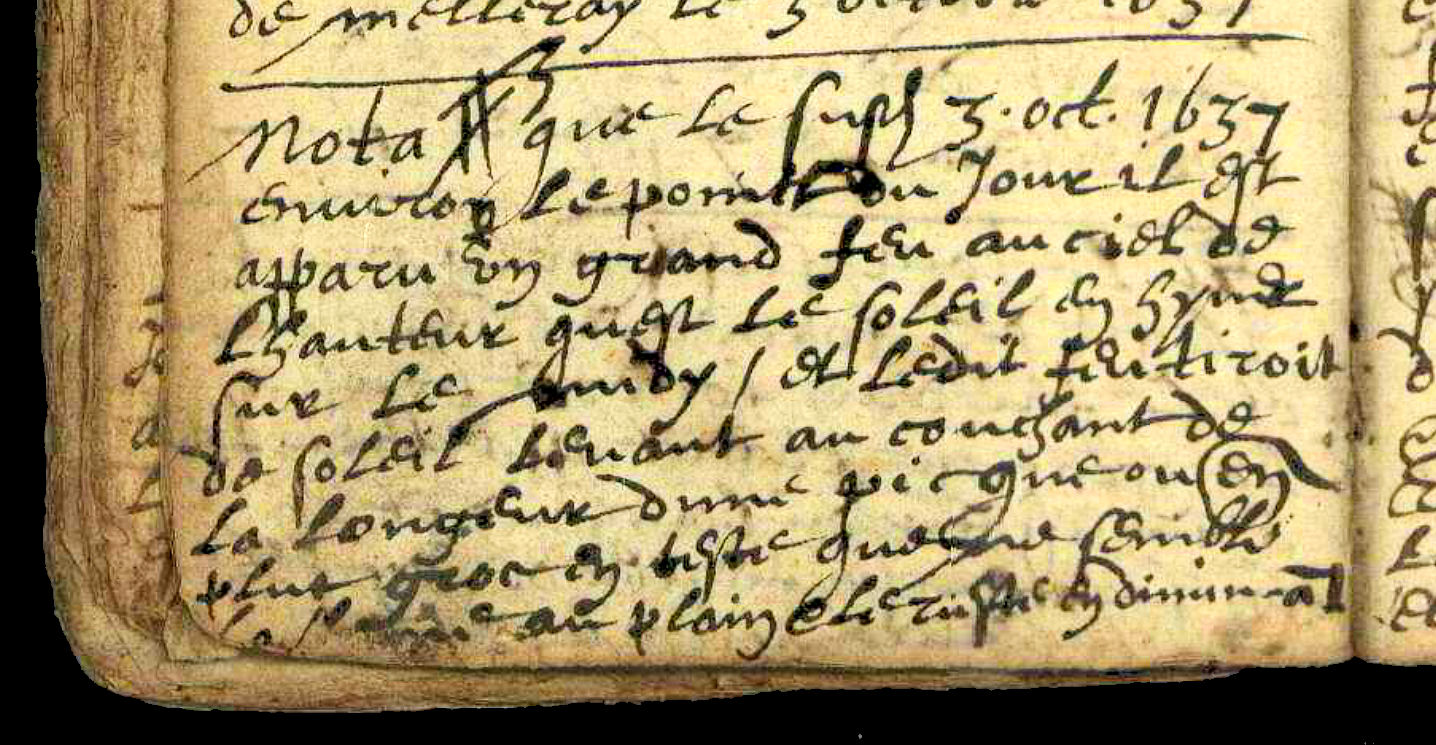 de melleray le 3 octobre 1637
Nota que le susd 3. oct. 1637
environ le point du Jour il est
apparu vn grand feu au ciel de
lhauteur quest le soleil en hyver
sur le midy / et ledit feu tiroit
de soleil levant au couchant de
la longeur dune picque ou en
plut gros en teste que me semble
la lune au plain & le reste en diminuāt